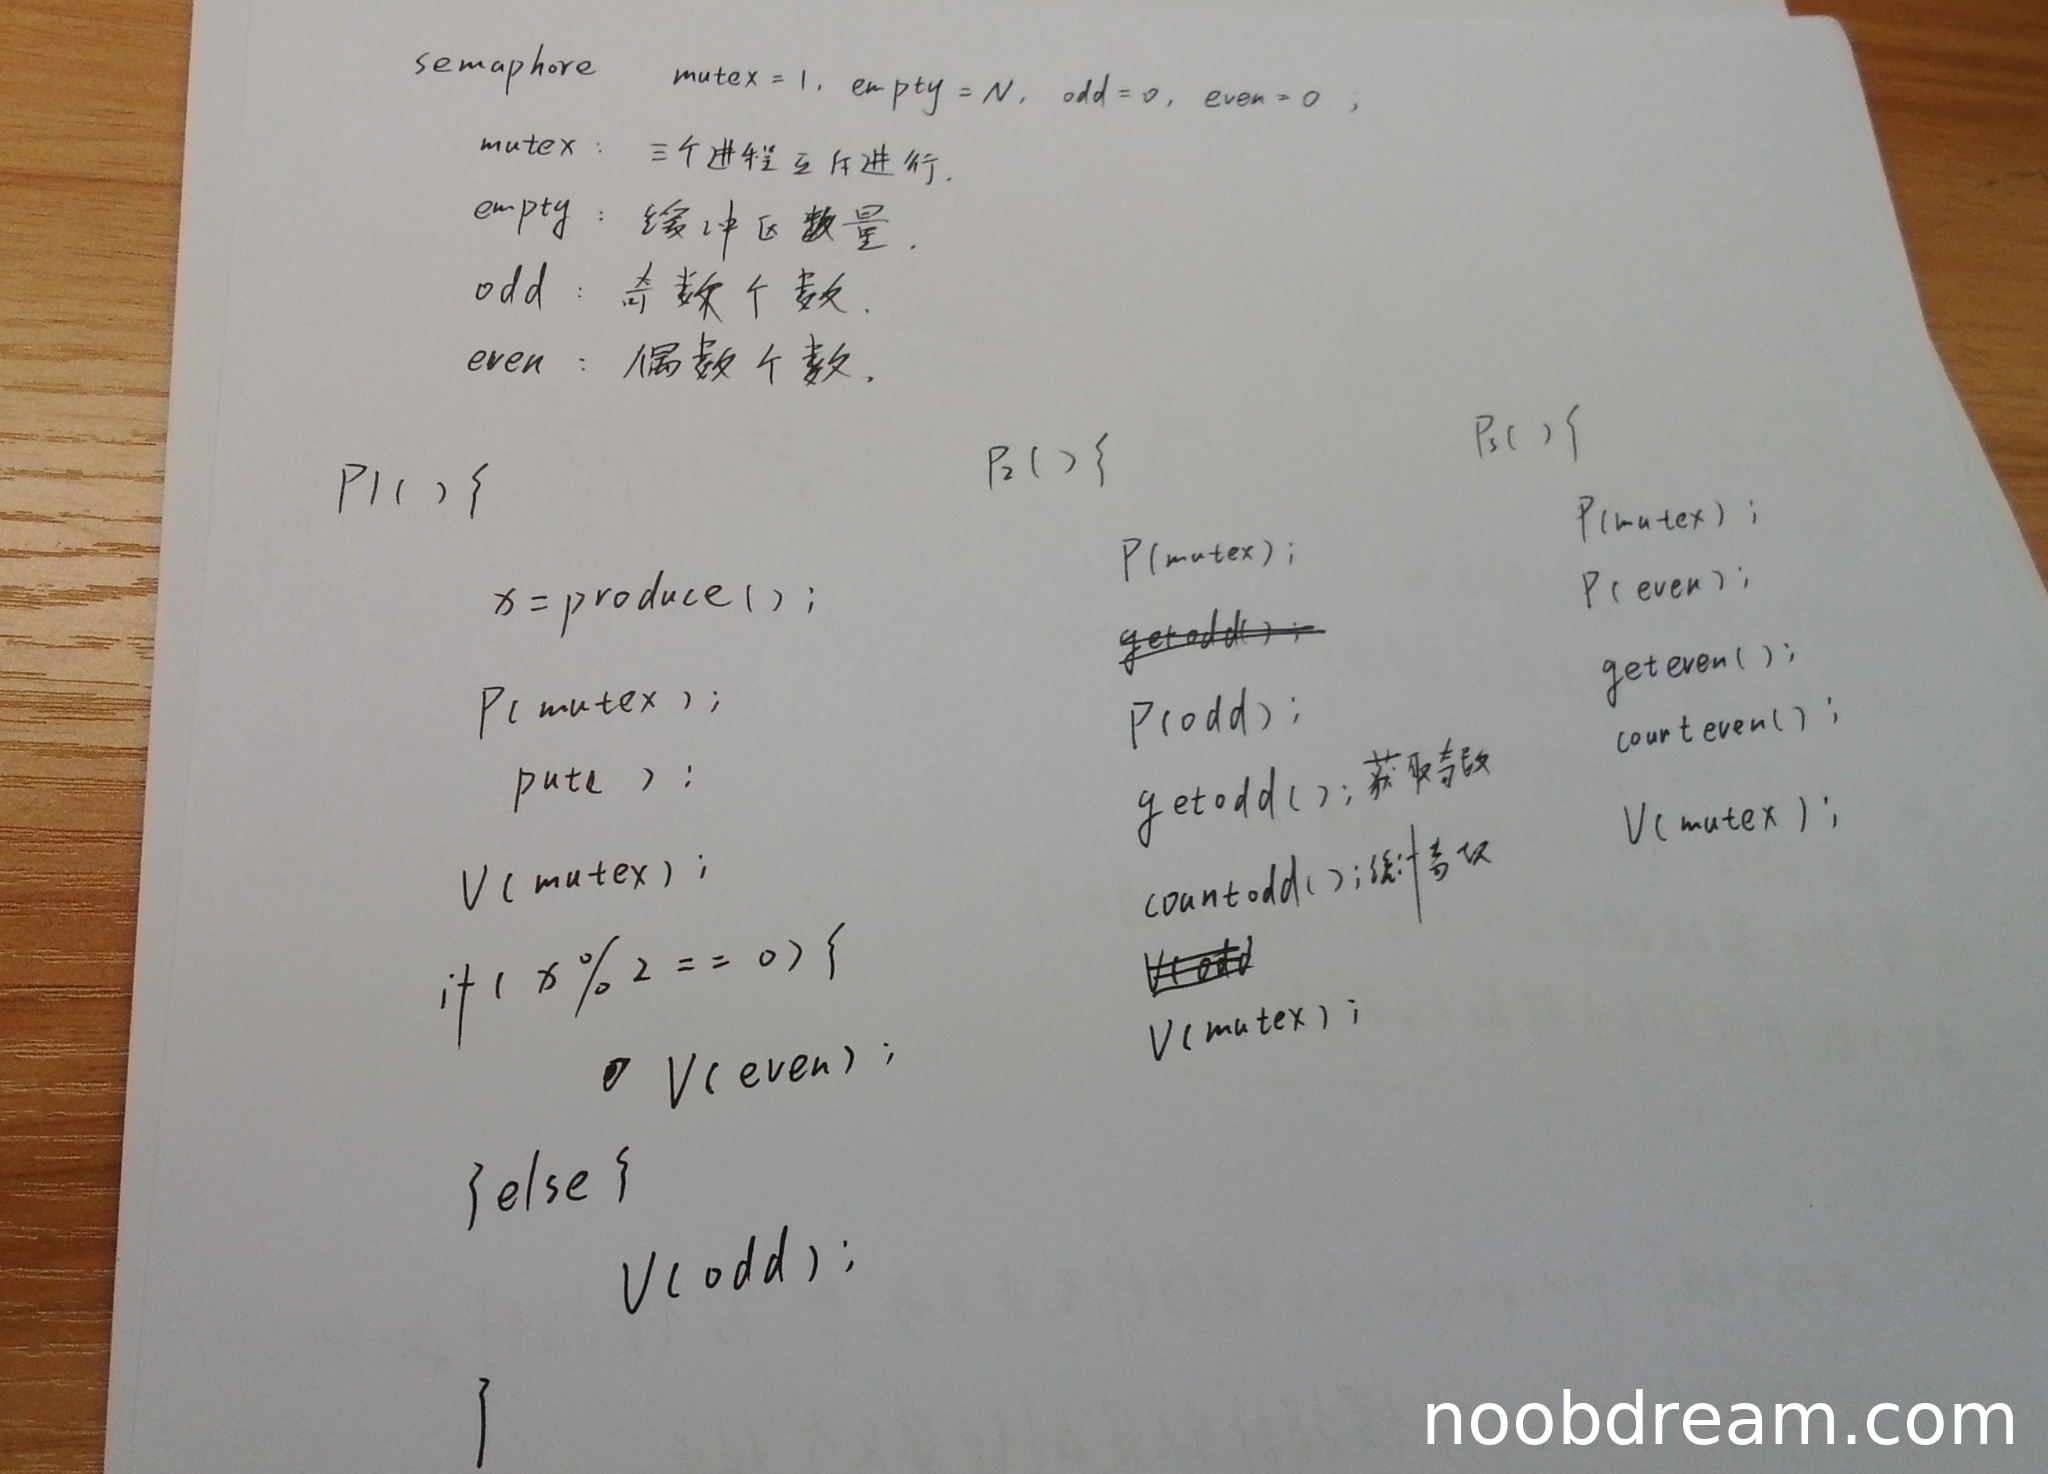 semaphore mutex = 1, empty = N, odd = 0, even = 0 ;
mutex : 三个进程互斥进行.
empty : 缓冲区数量.
odd : 奇数个数.
even : 偶数个数.
P1( ) {
x = produce( ) ;
P( mutex ) ;
put( ) ;
V( mutex ) ;
if( x % 2 == 0 ) {
V( even ) ;
} else {
V( odd ) ;
}
P2( ) {
P(mutex) ;
getodd( ) ;
P(odd) ;
getodd( ) ; 获取奇数
countodd( ) ; 统计奇数
V(odd
V(mutex) ;
P3( ) {
P(mutex) ;
P(even) ;
geteven( ) ;
counteven( ) ;
V(mutex) ;
noobdream.com